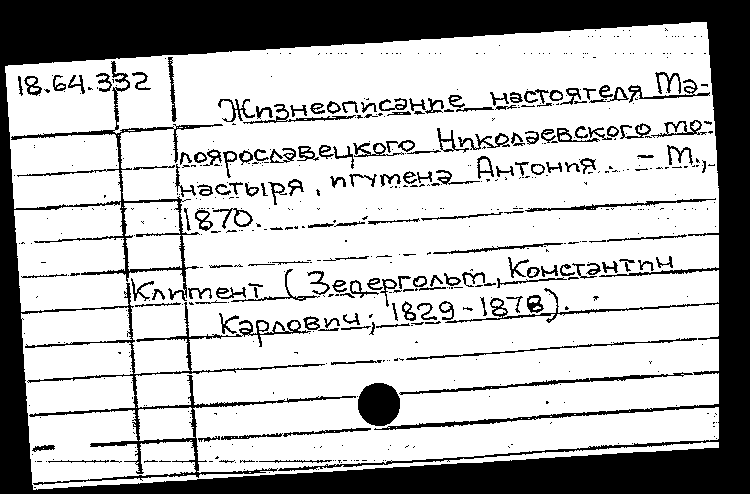 18.64.332
Жизнеописание настоятеля Ма-
лоярославецкого Николаевского мо-
настыря, игумена Антония. - М.,
1870.
Климент (Зедергольм, Константин
Карлович; 1829-1878).